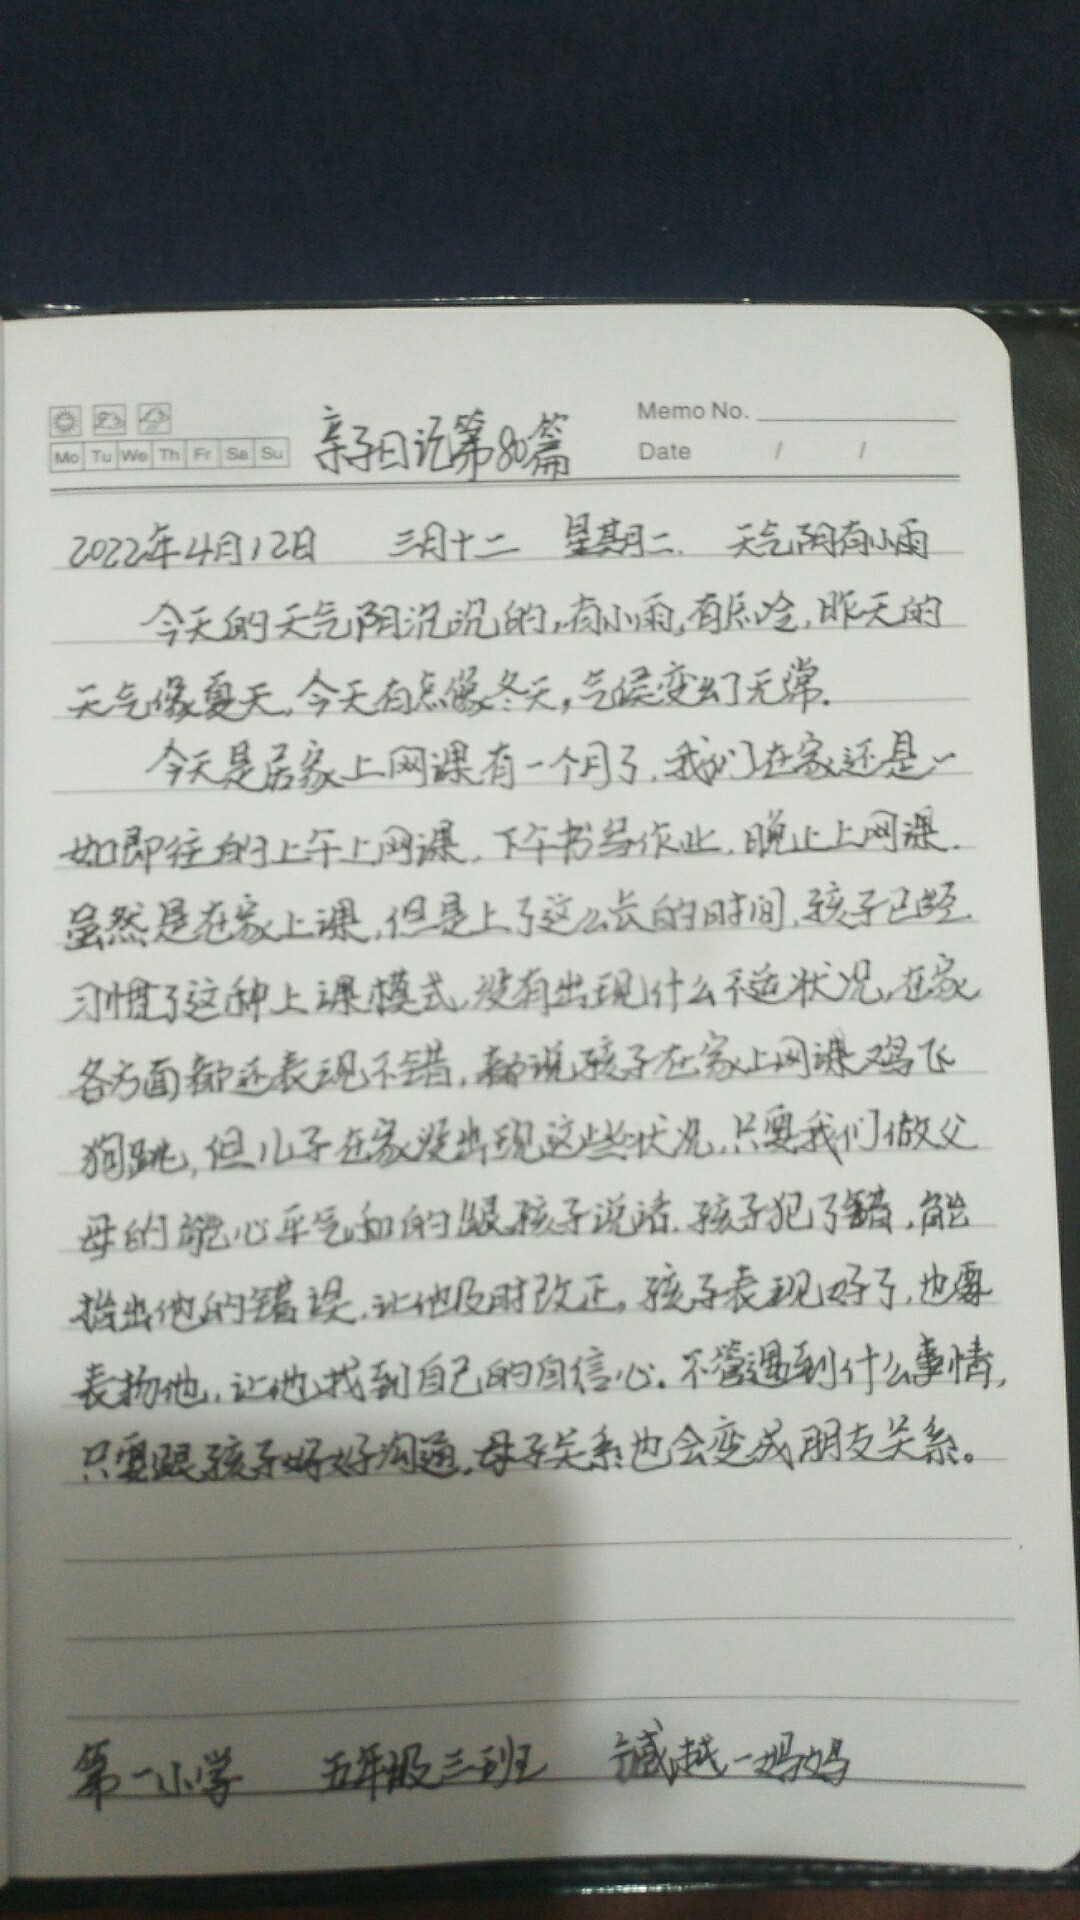 亲子日记第80篇
Memo No.
Mo Tu We Th Fr Sa Su
Date / /
2022年4月12日 三月十二 星期二. 天气阴有小雨
今天的天气阴沉沉的,有小雨,有点冷,昨天的
天气像夏天,今天有点像冬天,气候变幻无常.
今天是居家上网课有一个月了,我们在家还是一
如即往的上午上网课,下午书写作业,晚上上网课.
虽然是在家上课,但是上了这么长的时间,孩子已经
习惯了这种上课模式,没有出现什么不适状况,在家
各方面都还表现不错,都说孩子在家上网课鸡飞
狗跳,但儿子在家没出现这些状况,只要我们做父
母的能心平气和的跟孩子说话.孩子犯了错,能
指出他的错误,让他及时改正,孩子表现好了,也要
表扬他,让他找到自己的自信心。不管遇到什么事情,
只要跟孩子好好沟通,母子关系也会变成朋友关系。
第一小学 五年级三班 越一妈妈